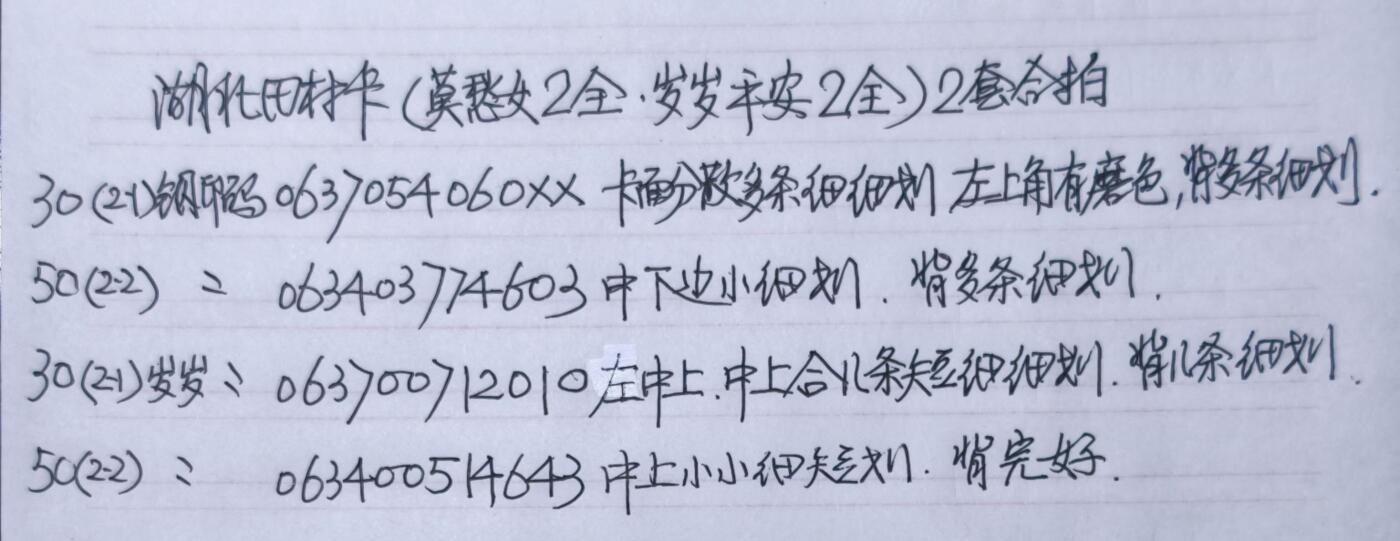 湖北田村卡(莫愁女2全·岁岁平安2全)2套合拍
30(2-1)钢印码0637054060XX 卡面分散多条细细划 左上角有磨色,背多条细划.
50(2-2) 〃 063403774603中下边小细划. 背多条细划.
30(2-1)岁岁〃 063700712010左中上.中上合几条短细细划. 背几条细划.
50(2-2) 〃 063400514643中上小小细短划. 背完好.